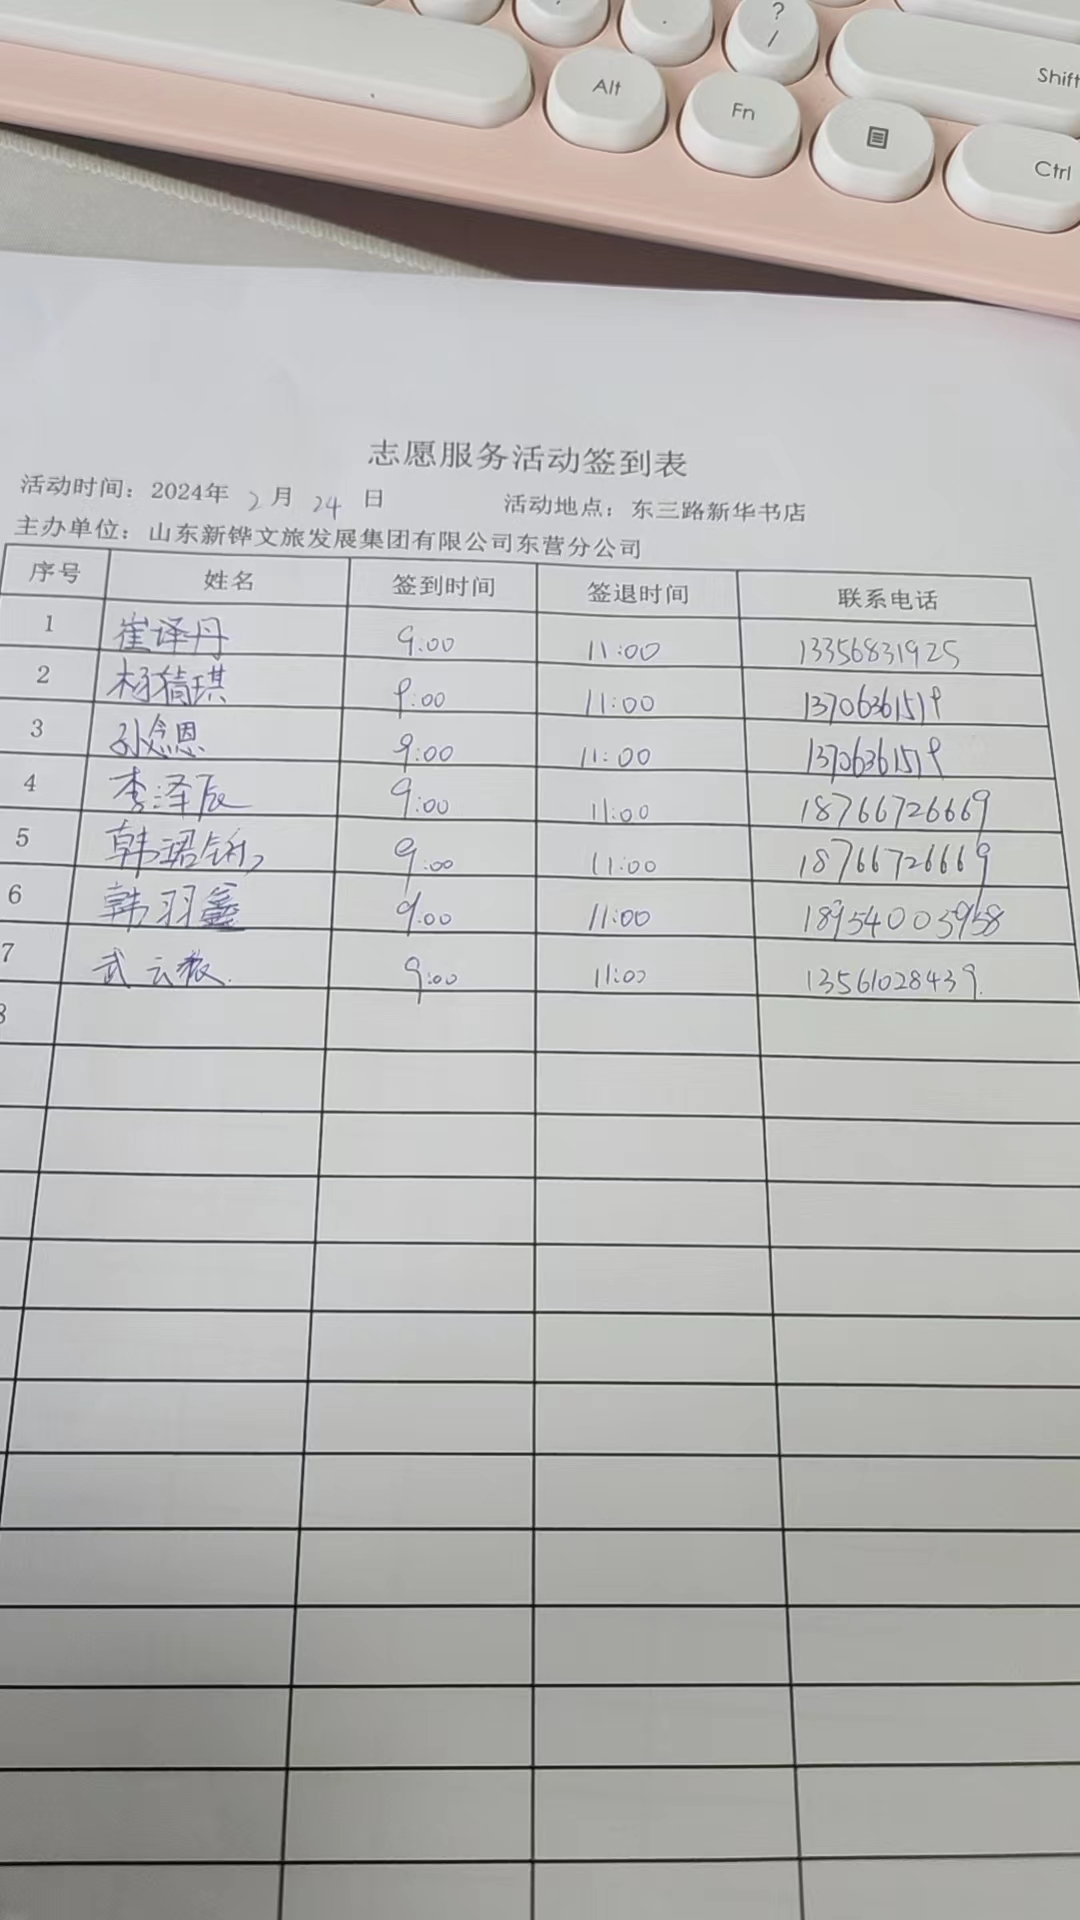 ?
/
Alt
Fn
Shift
Ctrl
志愿服务活动签到表
活动时间：2024年 2月 24 日 活动地点：东三路新华书店
主办单位：山东新铧文旅发展集团有限公司东营分公司
序号 姓名 签到时间 签退时间 联系电话
1 崔译丹 9:00 11:00 13356831925
2 杨倚琪 9:00 11:00 13706361519
3 孙念恩 9:00 11:00 13706361519
4 李泽辰 9:00 11:00 18766726669
5 韩 9:00 11:00 18766726669
6 韩羽鑫 9:00 11:00 18954003958
7 武云 9:00 11:00 13561028439.
8